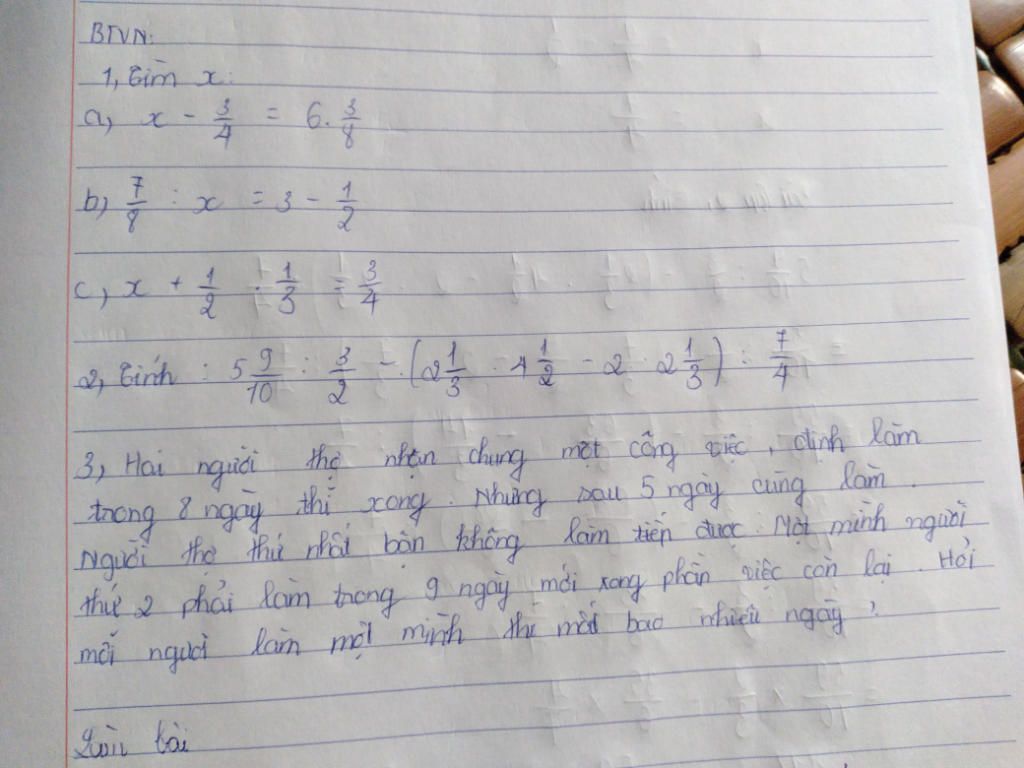 BTVN:
1, Tìm x:
a, x - 3/4 = 6 . 3/8
b) 7/8 : x = 3 - 1/2
c, x + 1/2 . 1/3 = 3/4
2, Tính : 5 9/10 : 3/2 - (2 1/3 . 4 1/2 - 2 . 2 1/3) : 7/4 =
3, Hai người thợ nhận chung một công việc, định làm
trong 8 ngày thì xong. Nhưng sau 5 ngày cùng làm.
Người thợ thứ nhất bận không làm tiếp được. Một mình người
thứ 2 phải làm trong 9 ngày mới xong phần việc còn lại. Hỏi
mỗi người làm một mình thì mất bao nhiêu ngày?
bài